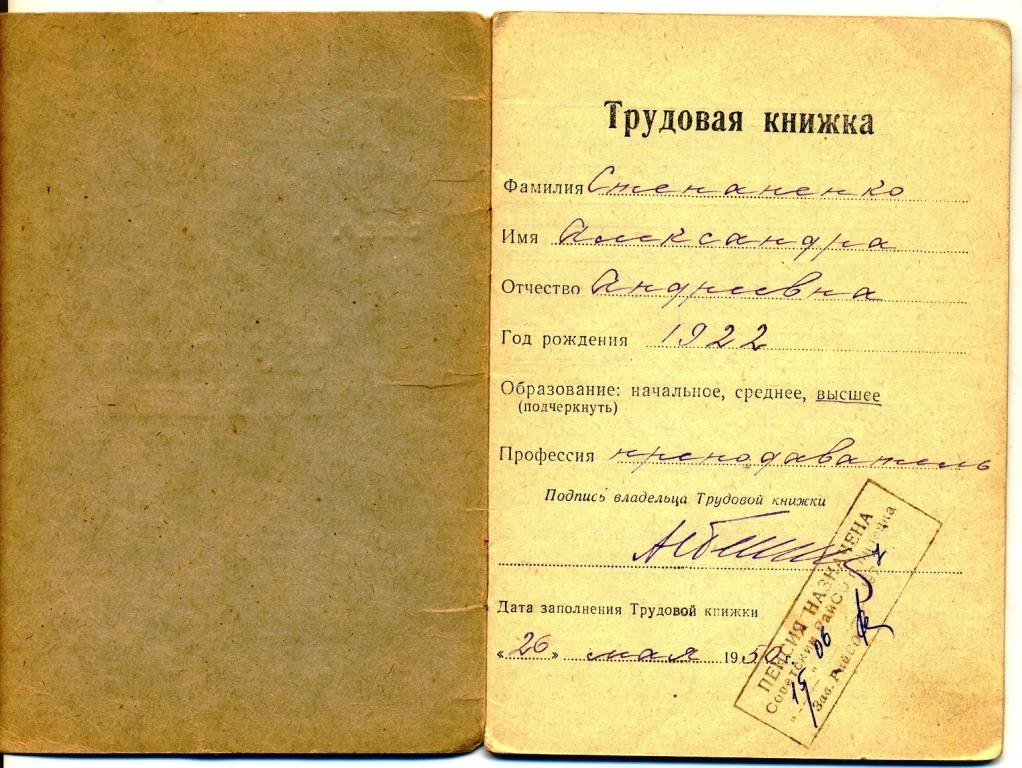 Трудовая книжка
Фамилия Степаненко
Имя Александра
Отчество Андреевна
Год рождения 1922
Образование: начальное, среднее, высшее
(подчеркнуть)
Профессия преподаватель
Подпись владельца Трудовой книжки
Дата заполнения Трудовой книжки
«26» мая 1950
ПЕНСИЯ НАЗНАЧЕНА
Советский
15 06
Зав. Райсо